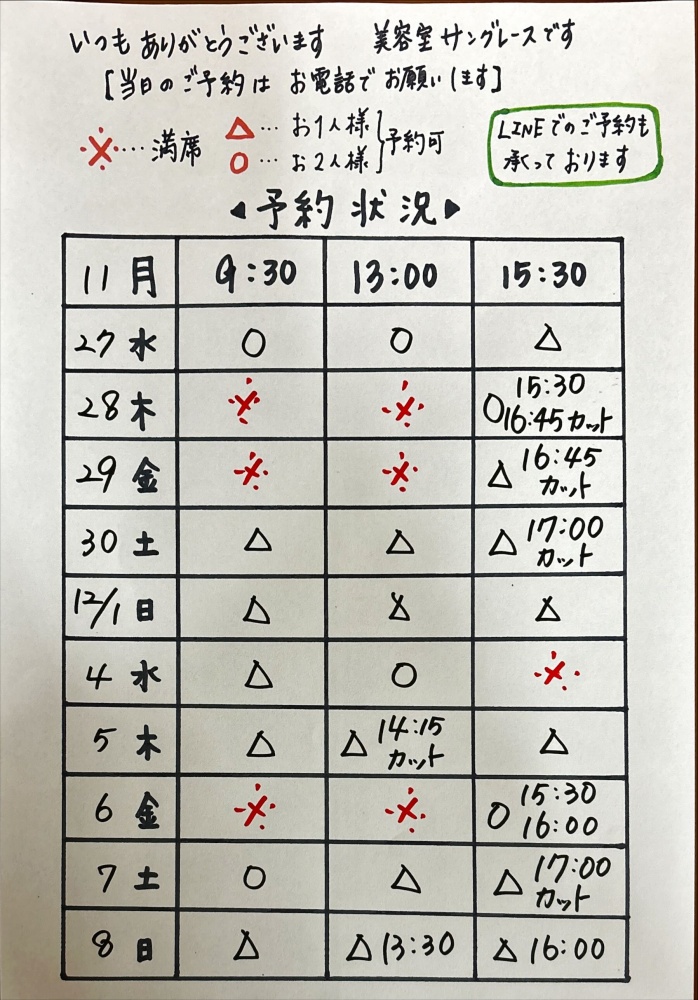 いつもありがとうございます 美容室サングレースです
[当日のご予約は お電話でお願いします]
※…満席 △…お1人様 ○…お2人様 予約可
LINEでのご予約も
承っております
◀予約状況▶
11月 9:30 13:00 15:30
27 水 ○ ○ △
28 木 ※ ※ ○15:30 16:45カット
29 金 ※ ※ △16:45カット
30 土 △ △ △17:00カット
12/1 日 △ △ △
4 水 △ ○ ※
5 木 △ △14:15カット △
6 金 ※ ※ ○15:30 16:00
7 土 ○ △ △17:00カット
8 日 △ △13:30 △16:00